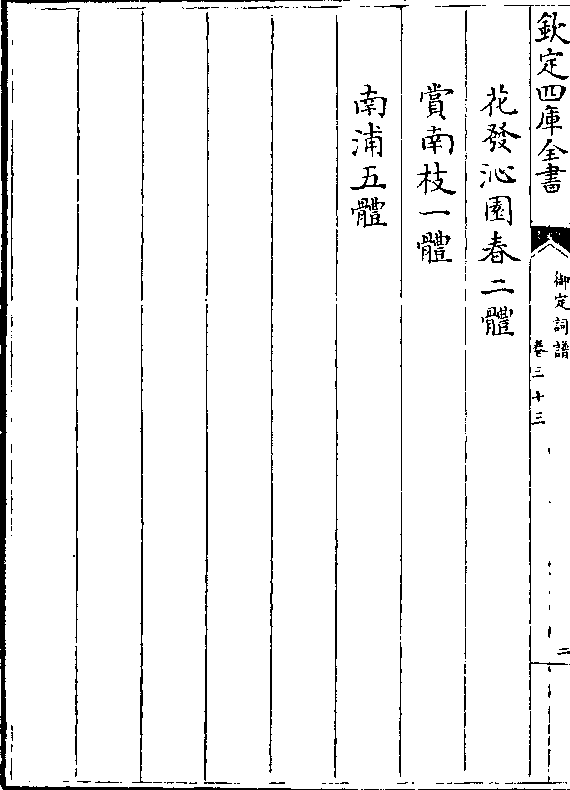 欽定四庫全書
御定詞譜
卷三十三
二
花發沁園春二體
賞南枝一體
南浦五體